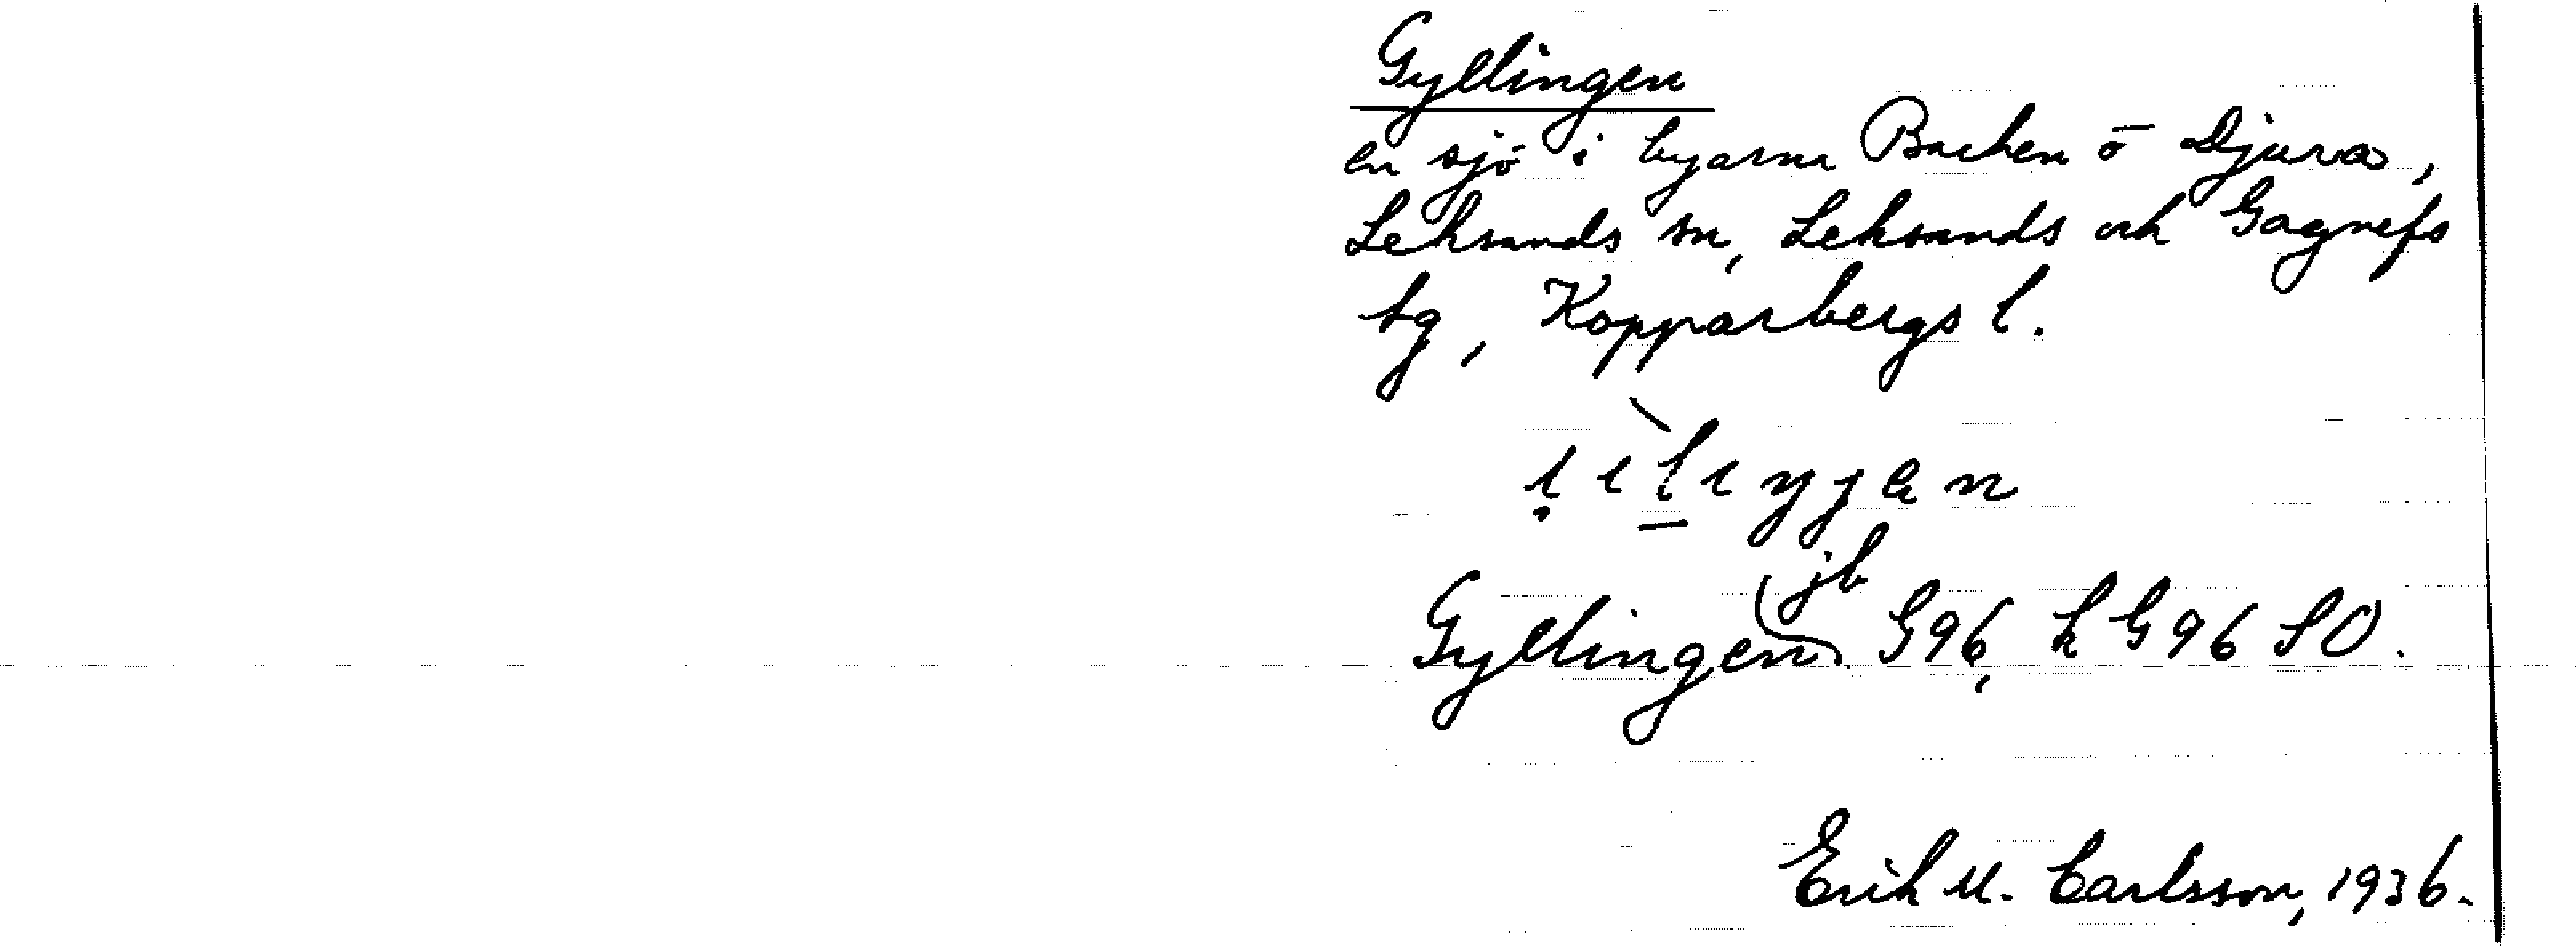 Gyllingen
en sjö i byarna Backen o Djura,
Leksands sn, Leksands och Gagnefs
tg, Kopparbergs l.
jb
Gyllingen G96, h G96 SO.
Erik M. Carlsson, 1936.